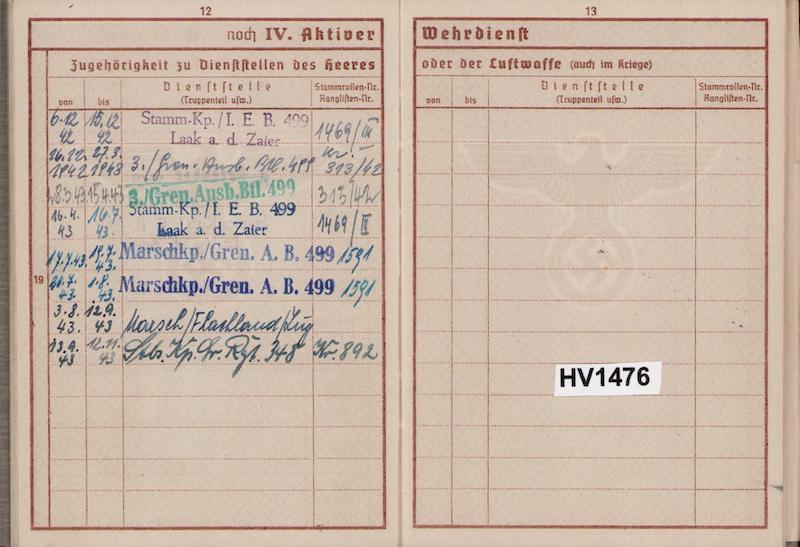 12
noch IV. Aktiver
Zugehörigkeit zu Dienststellen des Heeres
von
bis
Dienststelle
(Truppenteil usw.)
Stammrollen-Nr.
Ranglisten-Nr.
6.12 15.12 Stamm-Kp./I. E. B. 499 1469/III
42 42 Laak a. d. Zaier
16.12. 27.3. 3./Gren. Ausb. Btl. 499 Nr.
1942 1943 313/42
28.3.43 15.4.43 3./Gren.Ausb.Btl.499 313/42
16.4. 16.7. Stamm-Kp./I. E. B. 499
43 43. Laak a. d. Zaier 1469/II
17.7.43. 19.7. Marschkp./Gren. A. B. 499 1591
43.
19
20.7. 1.8. Marschkp./Gren. A. B. 499 1591
43. 43.
3.8. 12.9.
43. 43 Marsch/Flachland/Zug
13.9. 12.11. Stbs. Kp. Gr. Rgt. 348 Nr. 892
43 43
13
Wehrdienst
oder der Luftwaffe (auch im Kriege)
von
bis
Dienststelle
(Truppenteil usw.)
Stammrollen-Nr.
Ranglisten-Nr.
HV1476